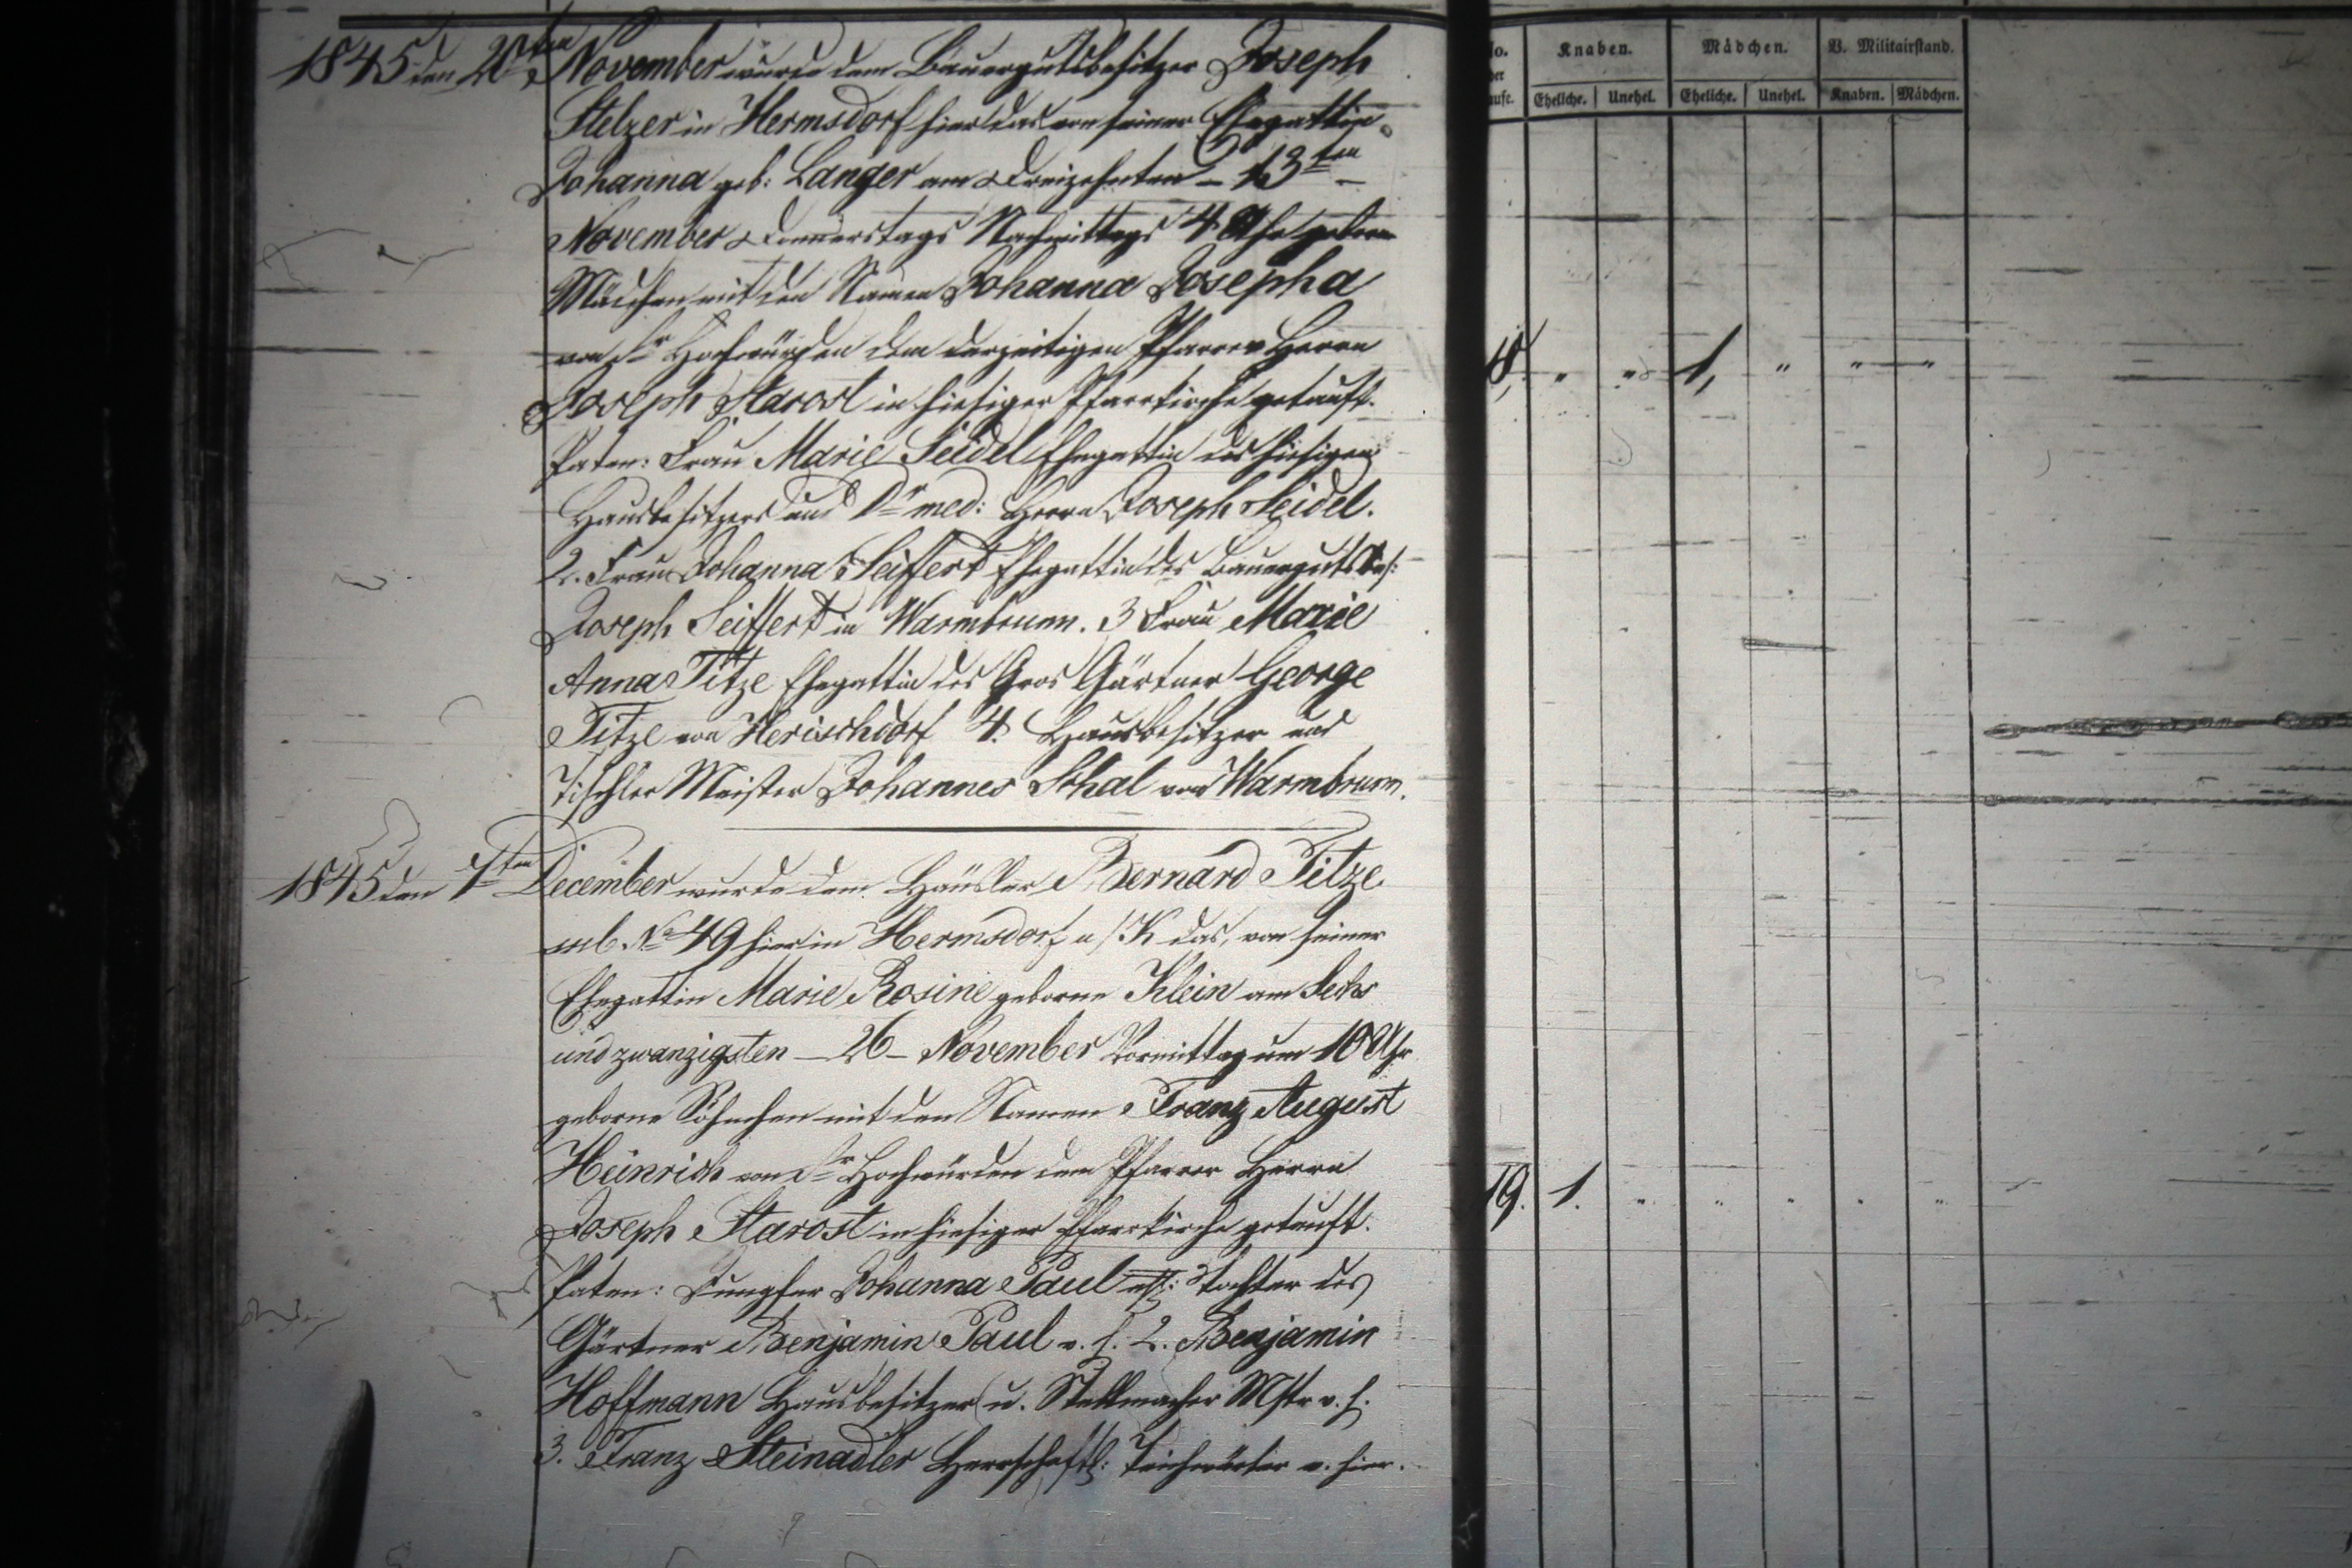 1845 den 20ten November wurde dem Bauergutsbesitzer Joseph
Stelzer in Hermsdorf hier das von seiner Ehegattin
Johanna geb: Langer am Dreizehnten – 13ten –
November Donnerstags Nachmittags 4 Uhr geborne
Mädchen mit den Namen Johanna Josepha
von Sr Hochwürden dem derzeitigen Pfarrer Herrn
Joseph Starost in hiesiger Pfarrkirche getauft.
Paten: Frau Marie Seidel Ehegattin des hiesigen
Hausbesitzers und Dr med: Herrn Joseph Seidel.
2. Frau Johanna Seiffert Ehegattin des Bauerguts Bes:
Joseph Seiffert in Warmbrunn. 3 Frau Marie
Anna Titze Ehegattin des Gros Gärtner George
Titze von Herischdorf 4. Hausbesitzer und
Tischler Meister Johannes Schal von Warmbrunn.
1845 den 7ten December wurde dem Häusler Bernard Titze
sub. No 49 hier in Hermsdorf u/K das, von seiner
Ehegattin Marie Rosine geborne Klein am Sechs
und zwanzigsten – 26 – November Vormittag um 10 Uhr
geborne Söhnchen mit den Namen Franz August
Heinrich von Sr Hochwürden dem Pfarrer Herrn
Joseph Starost in hiesiger Pfarrkirche getauft.
Paten: Jungfer Johanna Paul ehl: Tochter des
Gärtner Benjamin Paul v. h. 2. Benjamin
Hoffmann Hausbesitzer u. Stellmacher Mstr v. h.
3. Franz Steinadler Herrschaftl: Teichwärter v. hier.
No. Knaben. Mädchen. V. Militairstand.
der
Taufe. Eheliche. Unehel. Eheliche. Unehel. Knaben. Mädchen.
18, " " 1, " " "
19. 1. " " " " "